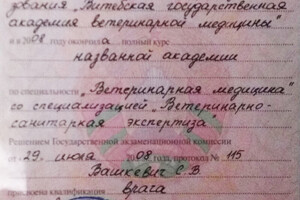 дования „Витебская государственная
академия ветеринарной медицины"
и в 2008 году окончил а полный курс
названной академии
по специальности „Ветеринарная медицина"
со специализацией „Ветеринарно-
санитарная экспертиза"
Решением Государственной экзаменационной комиссии
от „29" июня 2008, протокол № 115
Вашкевич С.В
присвоена квалификация врача